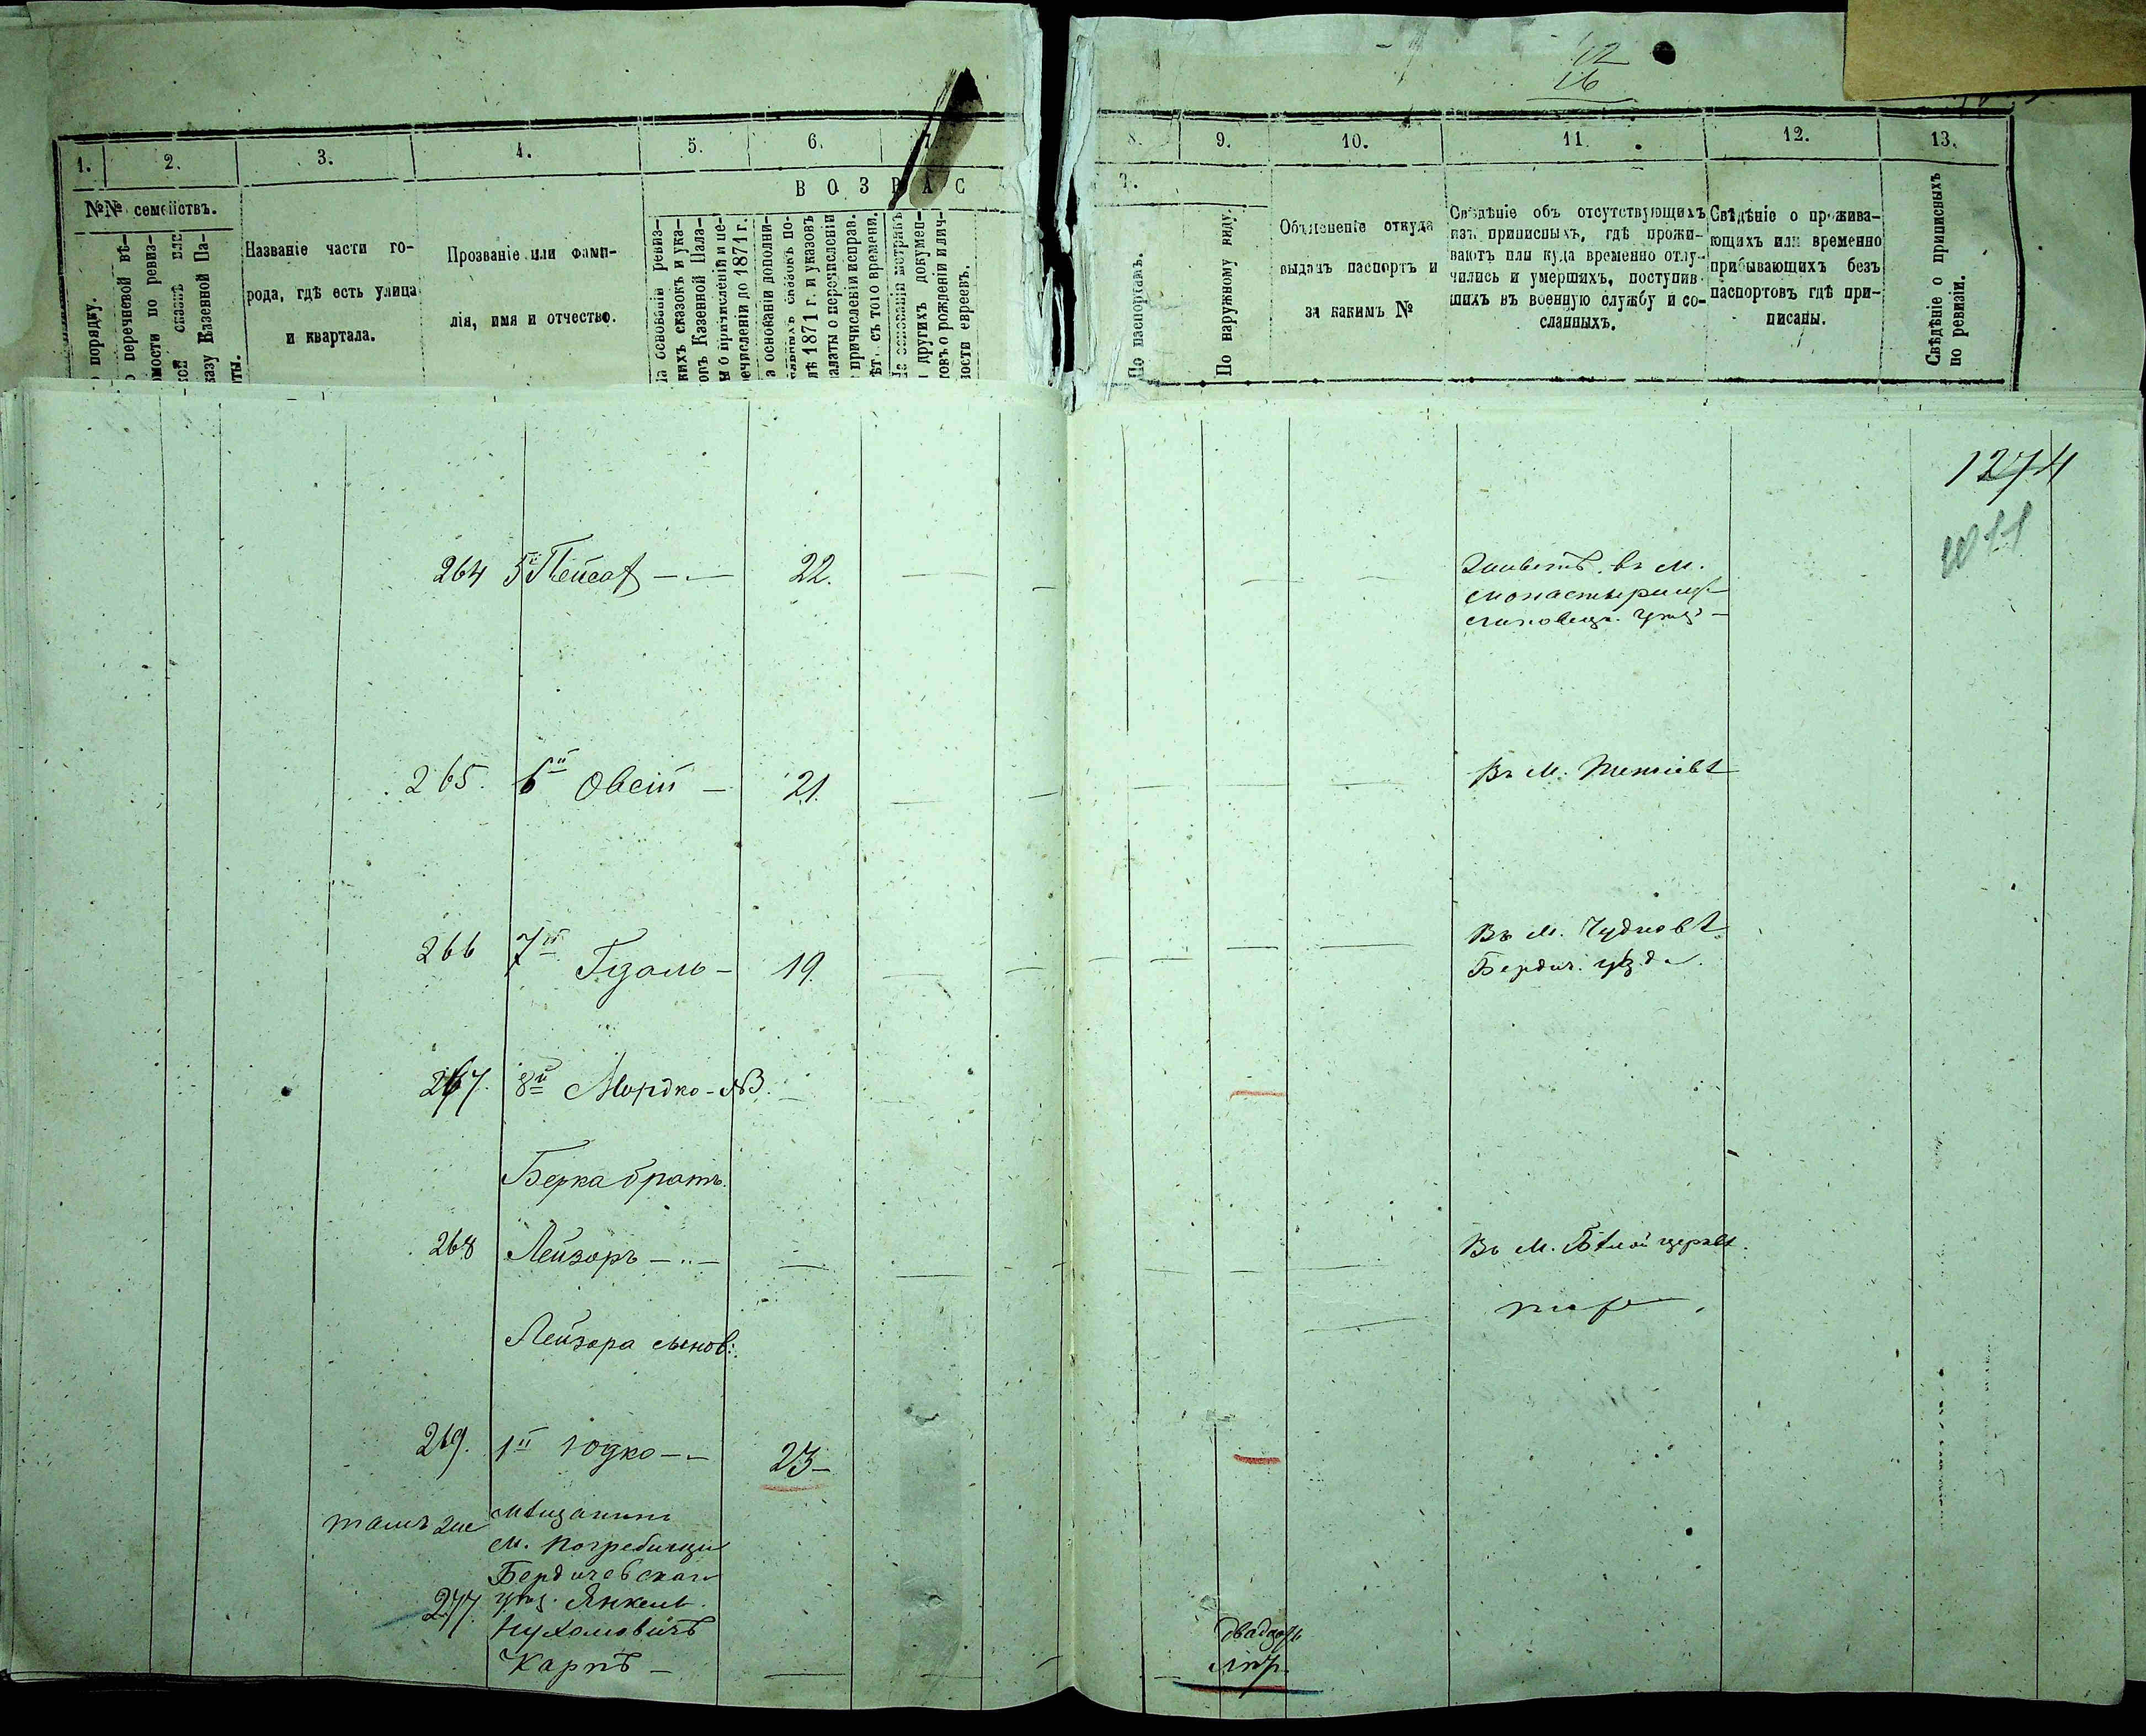 12
16
1.
2.
3.
4.
5.
6.
7
8.
9.
10.
11.
12.
13.
ВОЗРАС
№№ семействъ.
порядку.
перечневой вѣ-
омости по ревиз-
казу Казенной Па-
Названіе части го-
рода, гдѣ есть улица
и квартала.
Прозваніе или фами-
лія, имя и отчество.
На основаніи ревиз-
кихъ сказокъ и ука-
овъ Казенной Пала-
ы о причисленіи и пе-
речисленіи до 1871 г.
а основаніи дополни-
1871 г. и указовъ
алаты о перечисленіи
причисленіи исправ.
съ того времени.
На основаніи метрикъ
другихъ докумен-
товъ о рожденіи и лич-
ности евреевъ.
По паспортамъ.
По наружному виду.
Объясненіе откуда
выданъ паспортъ и
за какимъ №
Свѣдѣніе объ отсутствующихъ
изъ приписныхъ, гдѣ прожи-
ваютъ или куда временно отлу-
чились и умершихъ, поступив-
шихъ въ военную службу и со-
сланныхъ.
Свѣдѣніе о прожива-
ющихъ или временно
прибывающихъ безъ
паспортовъ гдѣ при-
писаны.
Свѣдѣніе о приписныхъ
по ревизіи.
1274
264 5й Пейсах — 22.
Живетъ въ м.
Монастырищ
Липовецк. уѣзд
265. 6й Овсій — 21.
Въ м.
266 7й Гдаль — 19.
Въ м. Чудновѣ
Бердич. уѣзда.
267. 8й Мордко
Берка братъ.
268 Лейзоръ —
Въ м. Бѣлой церквѣ.
Лейзора сынов:
269. 1й Юдко — 23 —
тамъ же
277.
мѣщанинъ
м. Погребищи
Бердичевскаго
уѣзд. Янкель
Нухомовичъ
Карпъ —
двадцать